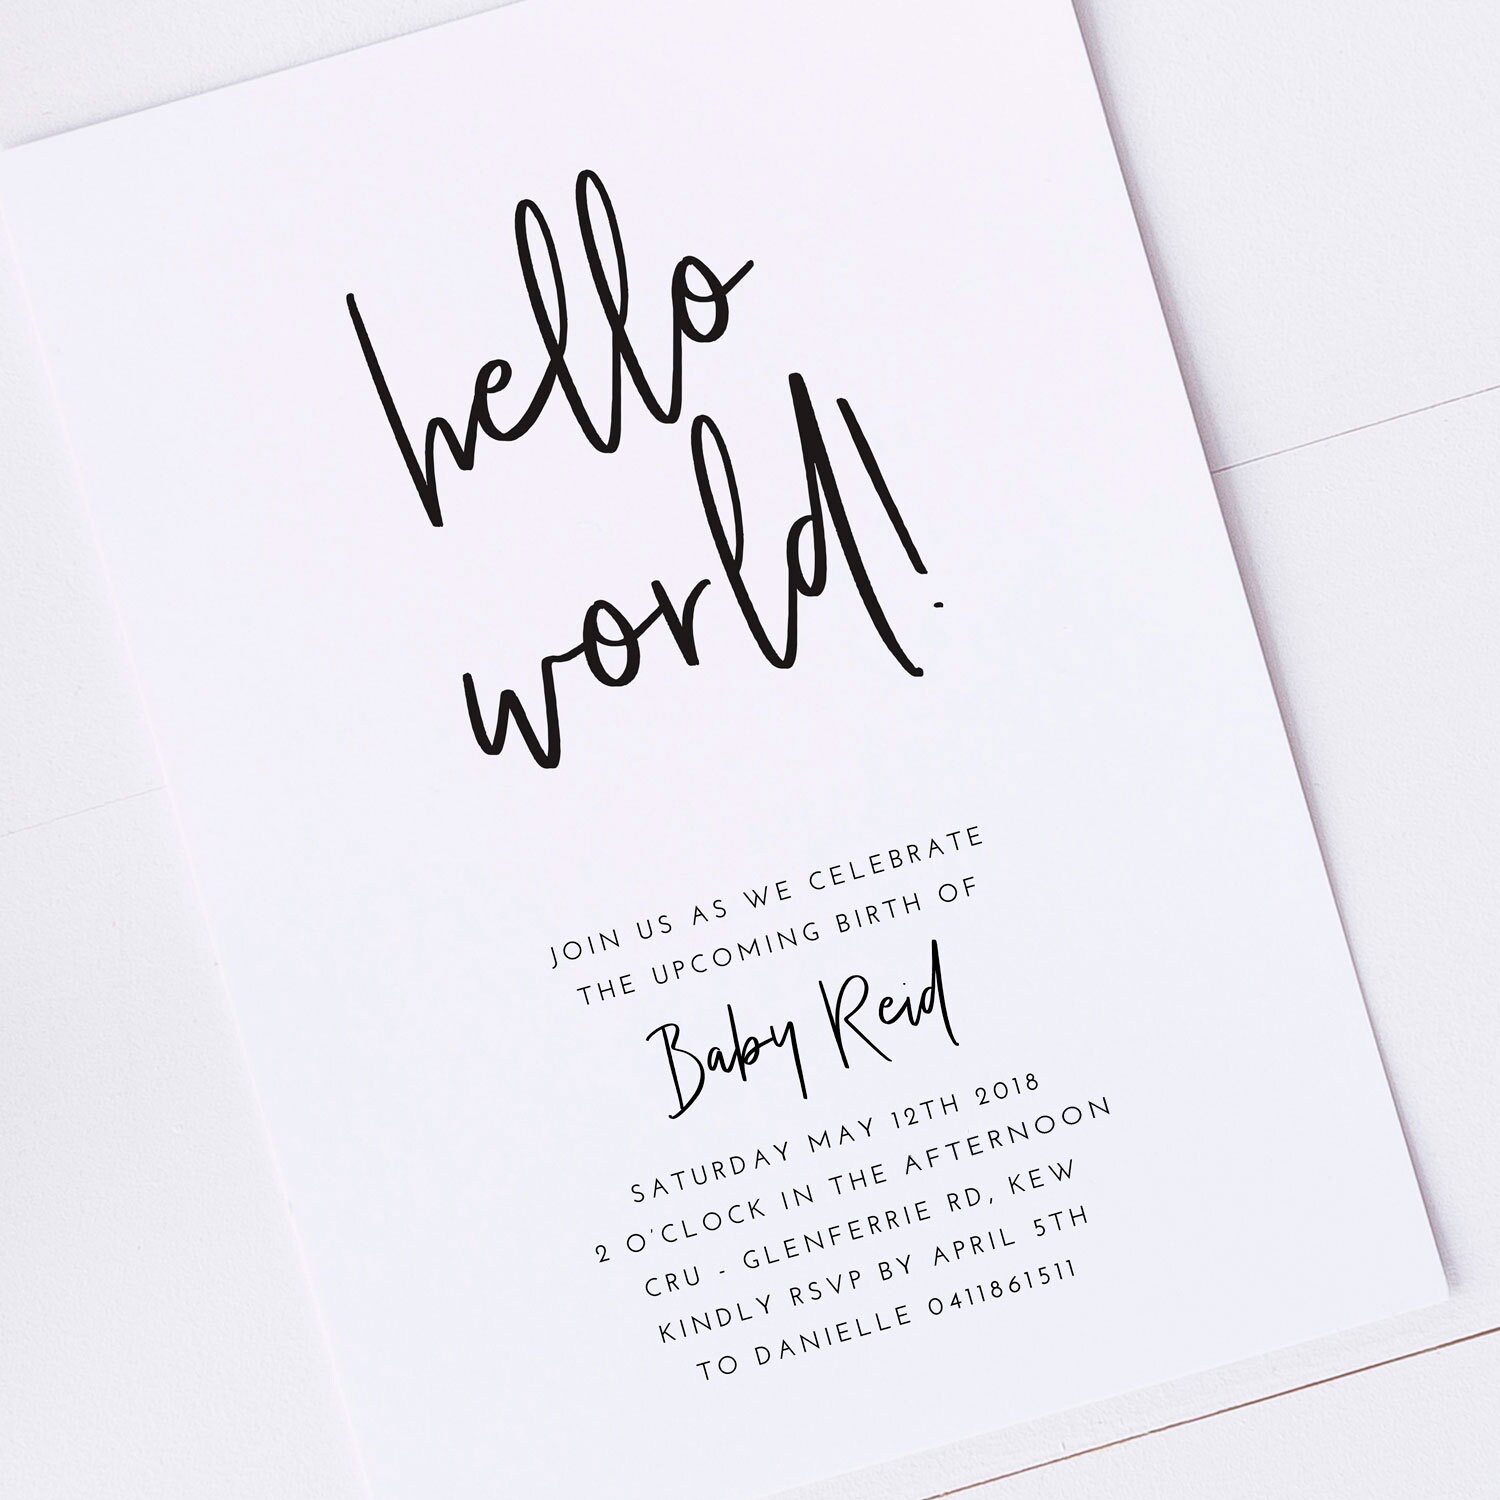 hello
world!
JOIN US AS WE CELEBRATE
THE UPCOMING BIRTH OF
Baby Reid
SATURDAY MAY 12TH 2018
2 O'CLOCK IN THE AFTERNOON
CRU - GLENFERRIE RD, KEW
KINDLY RSVP BY APRIL 5TH
TO DANIELLE 0411861511